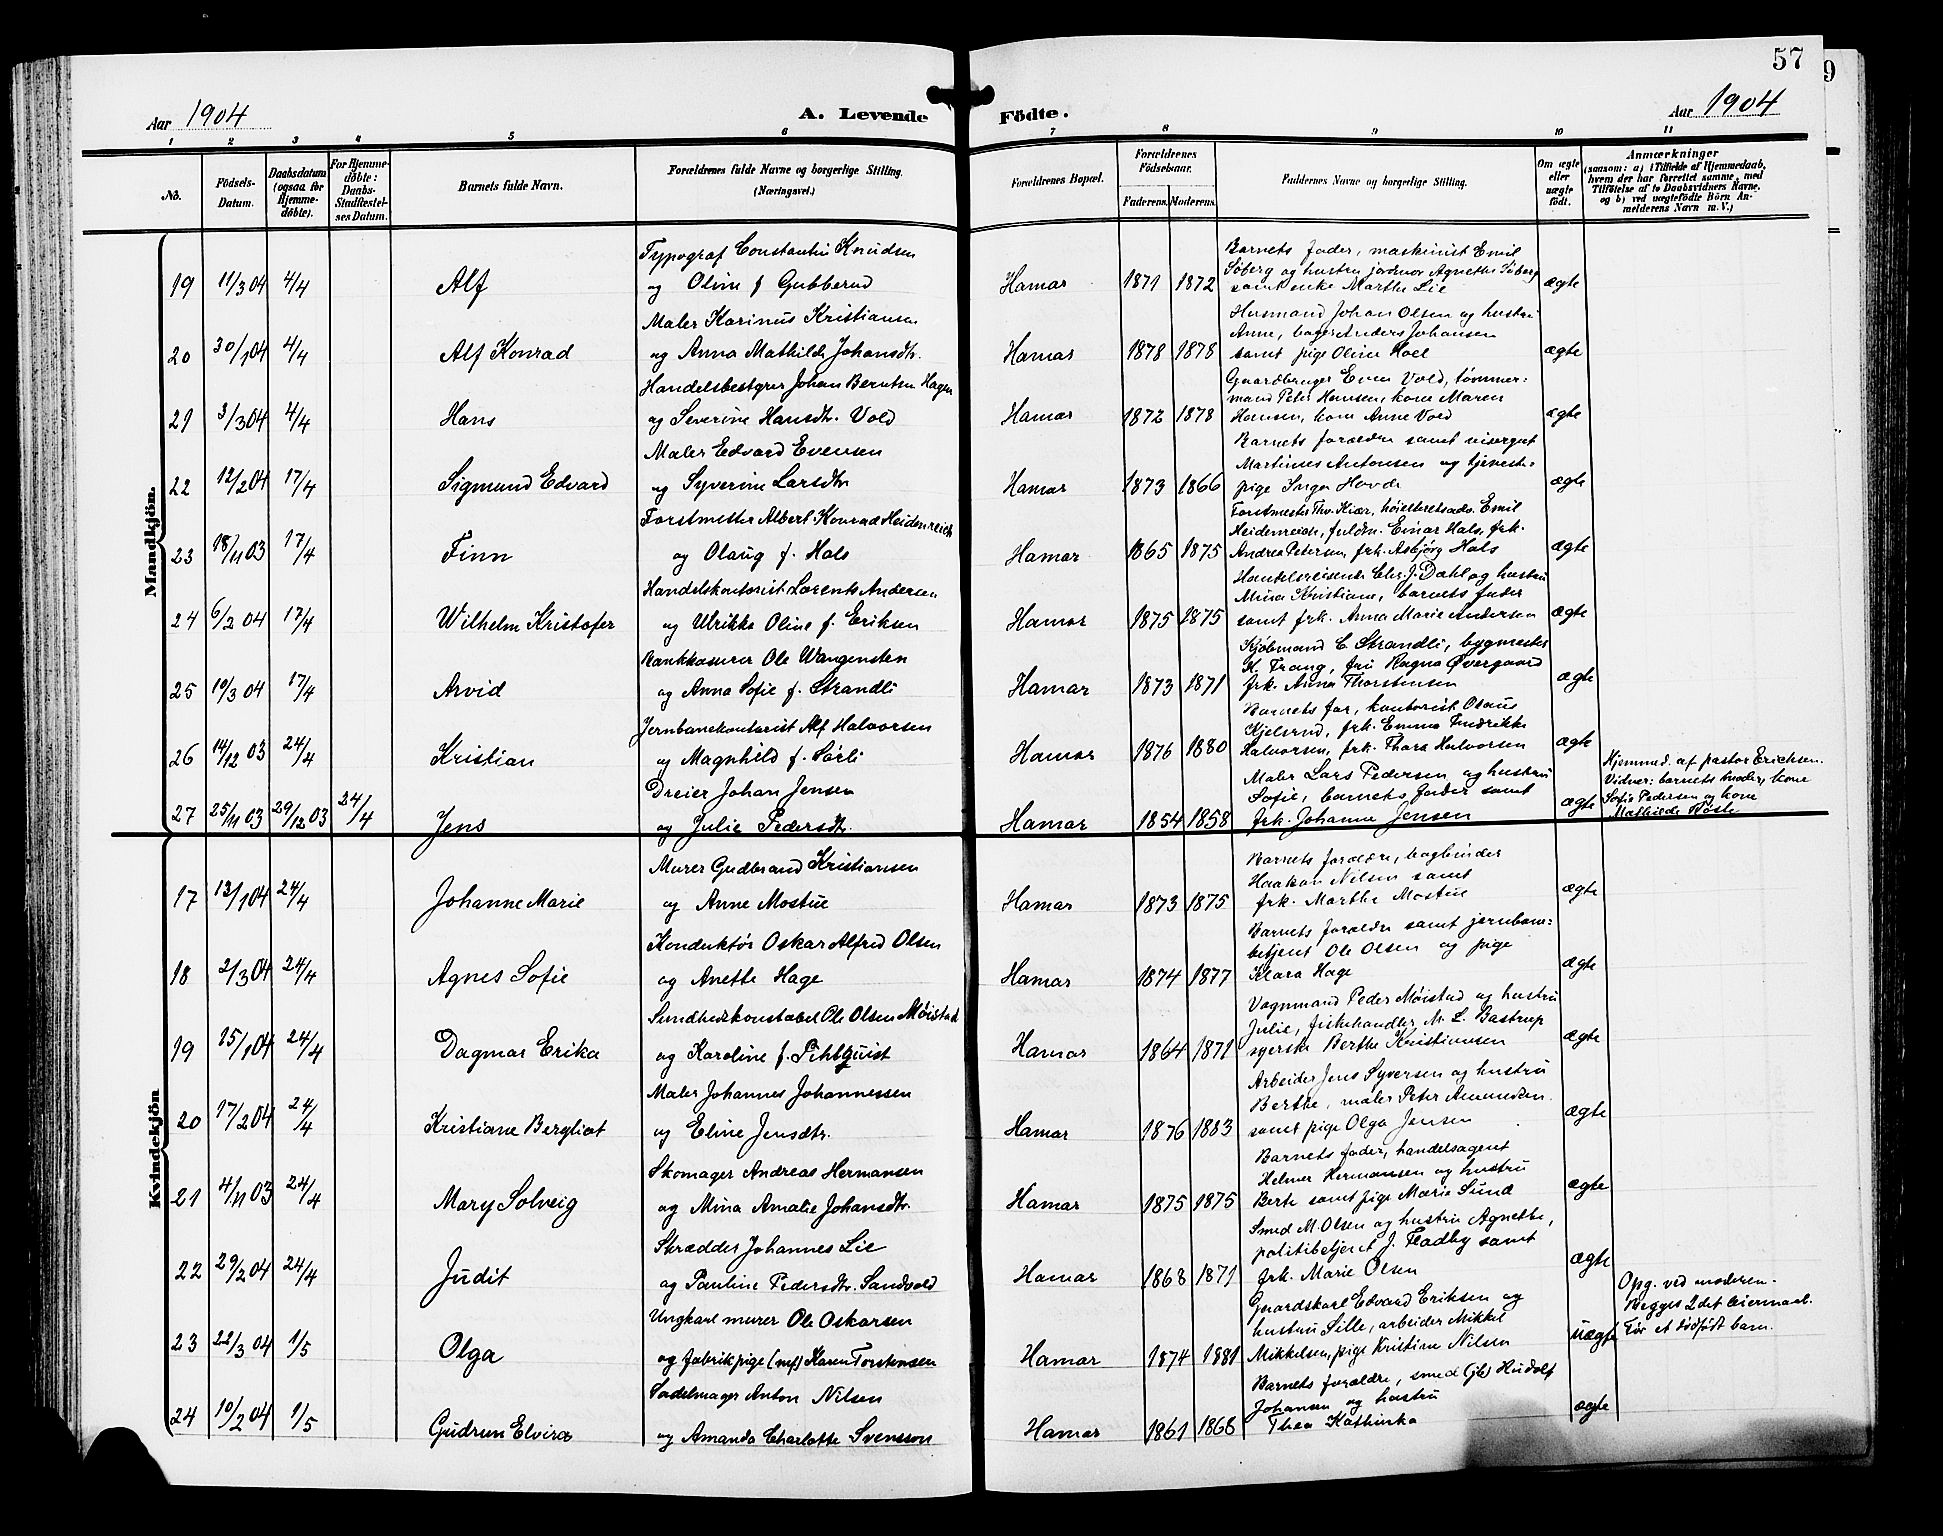 57
9
Aar 1904
A. Levende
Födte.
Aar 1904
1 2 3 4 5 6 7 8 9 10 11
No.
Födsels-
Datum.
Daabsdatum
(ogsaa for
Hjemme-
döbte).
For Hjemme-
döbte:
Daabs-
Stadfæstel-
ses Datum.
Barnets fulde Navn.
Forældrenes fulde Navne og borgerlige Stilling.
(Næringsvei.)
Forældrenes Bopæl.
Forældrenes
Födselsaar.
Faderens. Moderens.
Faddernes Navne og borgerlige Stilling.
Om ægte
eller
uægte
födt.
Anmærkninger
(saasom: a) i Tilfælde af Hjemmedaab,
hvem der har forrettet samme, med
Tilföielse af to Daabsvidners Navne,
og b) ved uægtefödte Börn An-
melderens Navn m. V.)
Mandkjön.
19 11/3 04 4/4 Alf
Typograf Constantin Knudsen
og Oline f. Gubberud
Hamar 1871 1872
Barnets fader, maskinist Emil
Söberg og hustru jordmor Agnethe Söberg
samt enke Marthe Lie
ægte
20 30/1 04 4/4 Alf Konrad
Maler Karinus Kristiansen
og Anna Mathilde Johansdtr.
Hamar 1878 1878
Husmand Johan Olsen og hustru
Anne, bager Anders Johansen
samt pige Oline Hoel
ægte
21 3/3 04 4/4 Hans
Handelsbestyrer Johan Berntsen Hagen
og Severine Hansdtr. Vold
Hamar 1872 1878
Gaardbruger Even Vold, tømmer-
mand Peter Hansen, kone Maren
Hansen, kone Anne Vold
ægte
22 12/2 04 17/4 Sigmund Edvard
Maler Edvard Evensen
og Syverine Larsdtr
Hamar 1873 1866
Barnets forældre samt visergut
Martinus Antonsen og tjeneste-
pige Inga Hovde
ægte
23 18/11 03 17/4 Finn
Forstmester Albert Konrad Heidenreich
og Olaug f. Hals
Hamar 1865 1875
Forstmester Thv. Kiær, høiesteretsadv. Emil
Heidenreich, fuldm. Einar Hals, frk.
Andrea Petersen, frk. Asbjørg Hals
ægte
24 6/2 04 17/4 Wilhelm Kristofer
Handelskontorist Lorents Andersen
og Ulrikke Oline f. Eriksen
Hamar 1875 1875
Handelsreisende Chr. J. Dæhl og hustru
Mina Kristiane, barnets fader
samt frk. Anna Marie Andersen
ægte
25 19/3 04 17/4 Arvid
Bankkaserer Ole Wangensten
og Anna Sofie f. Strandli
Hamar 1873 1871
Kjøbmand C. Strandli, bygmester
K. Trang, fru Ragna Øvergaard
frk. Anna Thorstensen
ægte
26 14/12 03 24/4 Kristian
Jernbanekontorist Alf Halvorsen
og Magnhild f. Sørli
Hamar 1876 1880
Barnets far, kontorist Olaus
Kjelsrud, frk. Emma Fredrikke
Halvorsen, frk. Thora Halvorsen
ægte
27 25/11 03 29/12 03 24/4 Jens
Dreier Johan Jensen
og Julie Pedersdtr.
Hamar 1854 1858
Maler Lars Pedersen og hustru
Sofie, barnets fader samt
frk. Johanne Jensen
ægte
Hjemmed. af pastor Erichsen.
Vidner: barnets moder, kone
Sofie Pedersen og kone
Mathilde Røste
Kvindekjön
17 13/1 04 24/4 Johanne Marie
Murer Gudbrand Kristiansen
og Anne Mostue
Hamar 1873 1875
Barnets forældre, bogbinder
Haakon Nilsen samt
frk. Marthe Mostue
ægte
18 2/3 04 24/4 Agnes Sofie
Konduktør Oskar Alfred Olsen
og Anette Hage
Hamar 1874 1877
Barnets forældre samt jernbane-
betjent Ole Olsen og pige
Klara Hage
ægte
19 15/1 04 24/4 Dagmar Erika
Sundhedskonstabel Ole Olsen Møistad
og Karoline f. Pihlquist
Hamar 1864 1871
Vognmand Peder Møistad og hustru
Julie, fiskehandler M. L. Bastrup
syerske Berthe Kristiansen
ægte
20 17/2 04 24/4 Kristiane Bergliot
Maler Johannes Johannessen
og Eline Jensdtr.
Hamar 1876 1883
Arbeider Jens Syversen og hustru
Berthe, maler Peter Amundsen
samt pige Olga Jensen
ægte
21 4/11 03 24/4 Mary Solveig
Skomager Andreas Hermansen
og Mina Amalie Johansdtr.
Hamar 1875 1875
Barnets fader, handelsagent
Helmer Hermansen og hustru
Berte samt pige Marie Sund
ægte
22 29/2 04 24/4 Judit
Skrædder Johannes Lie
og Pauline Pedersdtr. Sandvold
Hamar 1868 1871
Smed M. Olsen og hustru Agnethe,
politibetjent J. Fladby samt
frk. Marie Olsen
ægte
23 22/3 04 1/5 Olga
Ungkarl murer Ole Oskarsen
og fabrikpige Karen Torstensen
Hamar 1874 1881
Gaardskarl Edvard Eriksen og
hustru Sille, arbeider Mikkel
Mikkelsen, pige Kristine Nilsen
uægte
Opg. ved moderen.
Begges 2det leiermaal.
Før et dödfödt barn.
24 10/2 04 1/5 Gudrun Elvira
Sadelmager Anton Nilsen
og Amanda Charlotte Svensson
Hamar 1861 1868
Barnets forældre, smed Hudolf
Johansen og hustru
Thea Kathinka
ægte